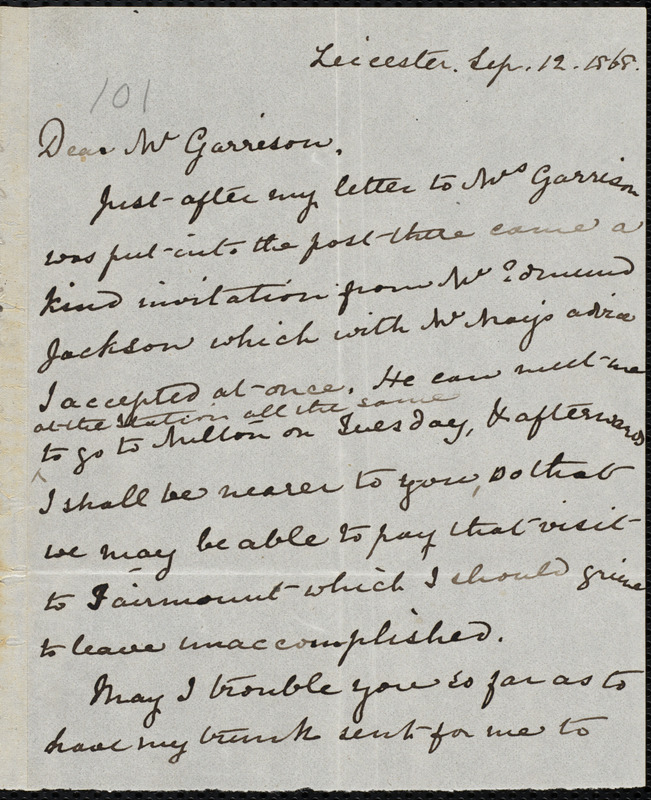 Leicester. Sep. 12. 1868.
101
Dear Mr Garrison,
Just after my letter to Mrs Garrison
was put into the post there came a
kind invitation from Mr Edmund
Jackson which with Mr May's advice
I accepted at once. He can meet me
at the station all the same
to go to Milton on Tuesday, & afterwards
I shall be nearer to you, so that
we may be able to pay that visit
to Fairmount which I should grieve
to leave unaccomplished.
May I trouble you so far as to
have my trunk sent for me to